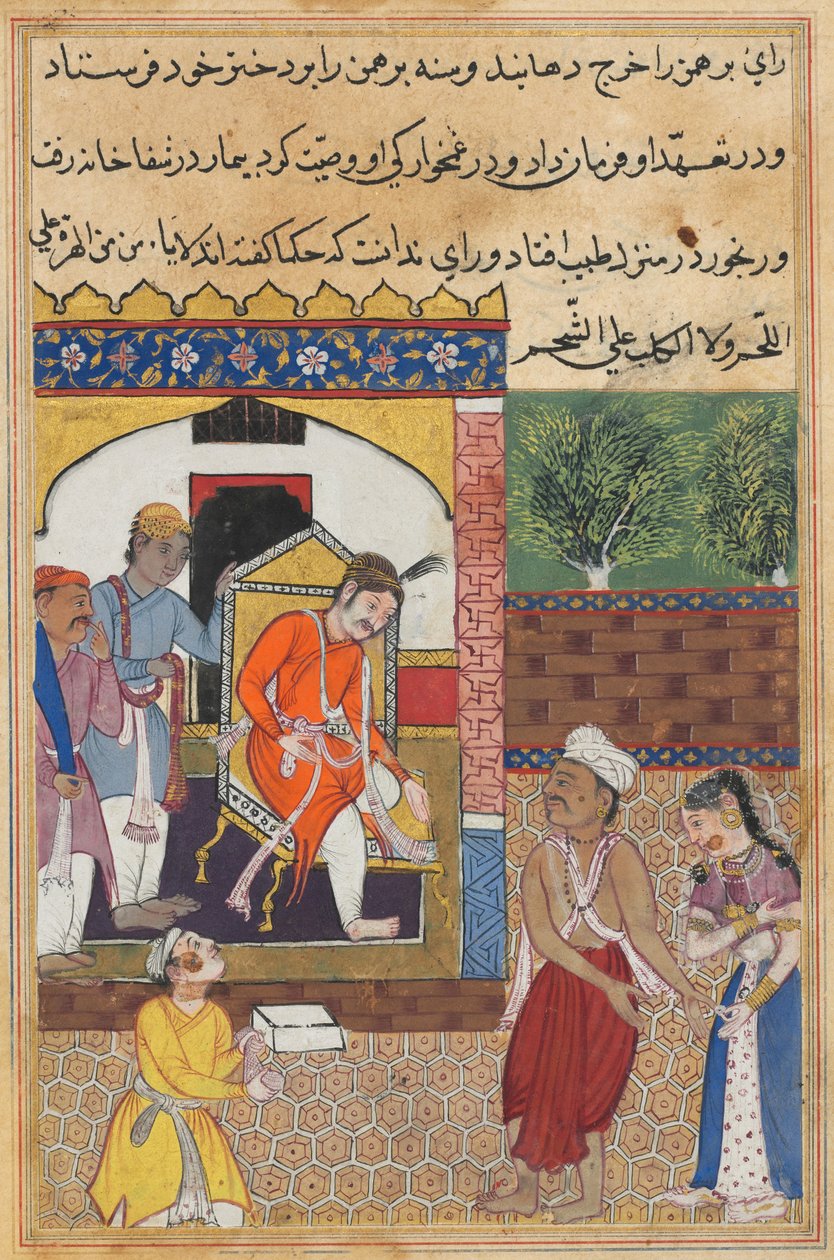 رای برهمن را خرج دهانید و سنه برهمن را برد ختر خود فرستاد
و در تعهّد او فرمان داد و در غمخوارکی او وصیّت کرد بیمار در شفاخانه رفت
و رنجور در منزل طبیب افتاد و رای ندانست که حکما کفته اند لایا من من الهرة علی
اللّحم ولا الکلب علی الشّحم